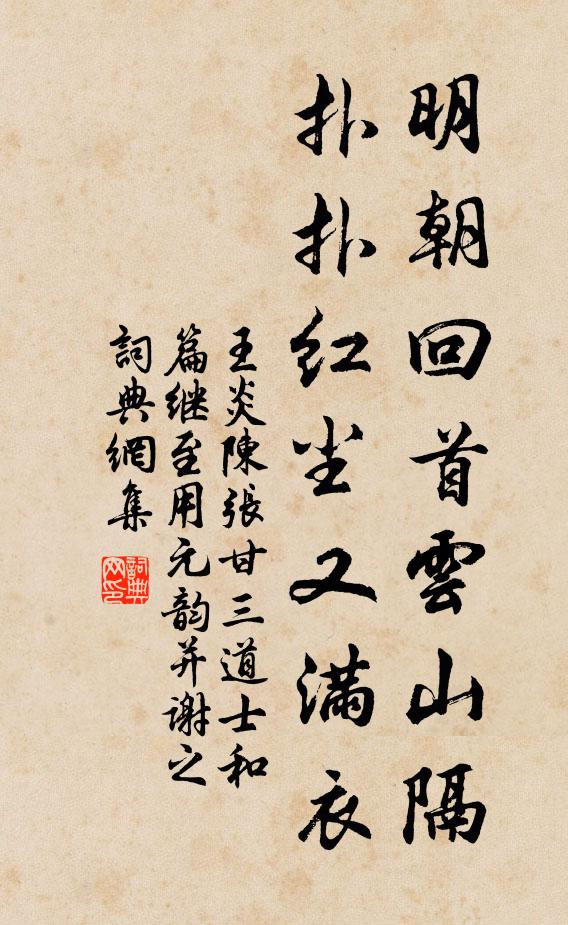 明朝回首雲山隔
扑扑红尘又满衣
王炎陳張甘三道士和
篇继至用元韵并谢之
詞典網集
詞典網印